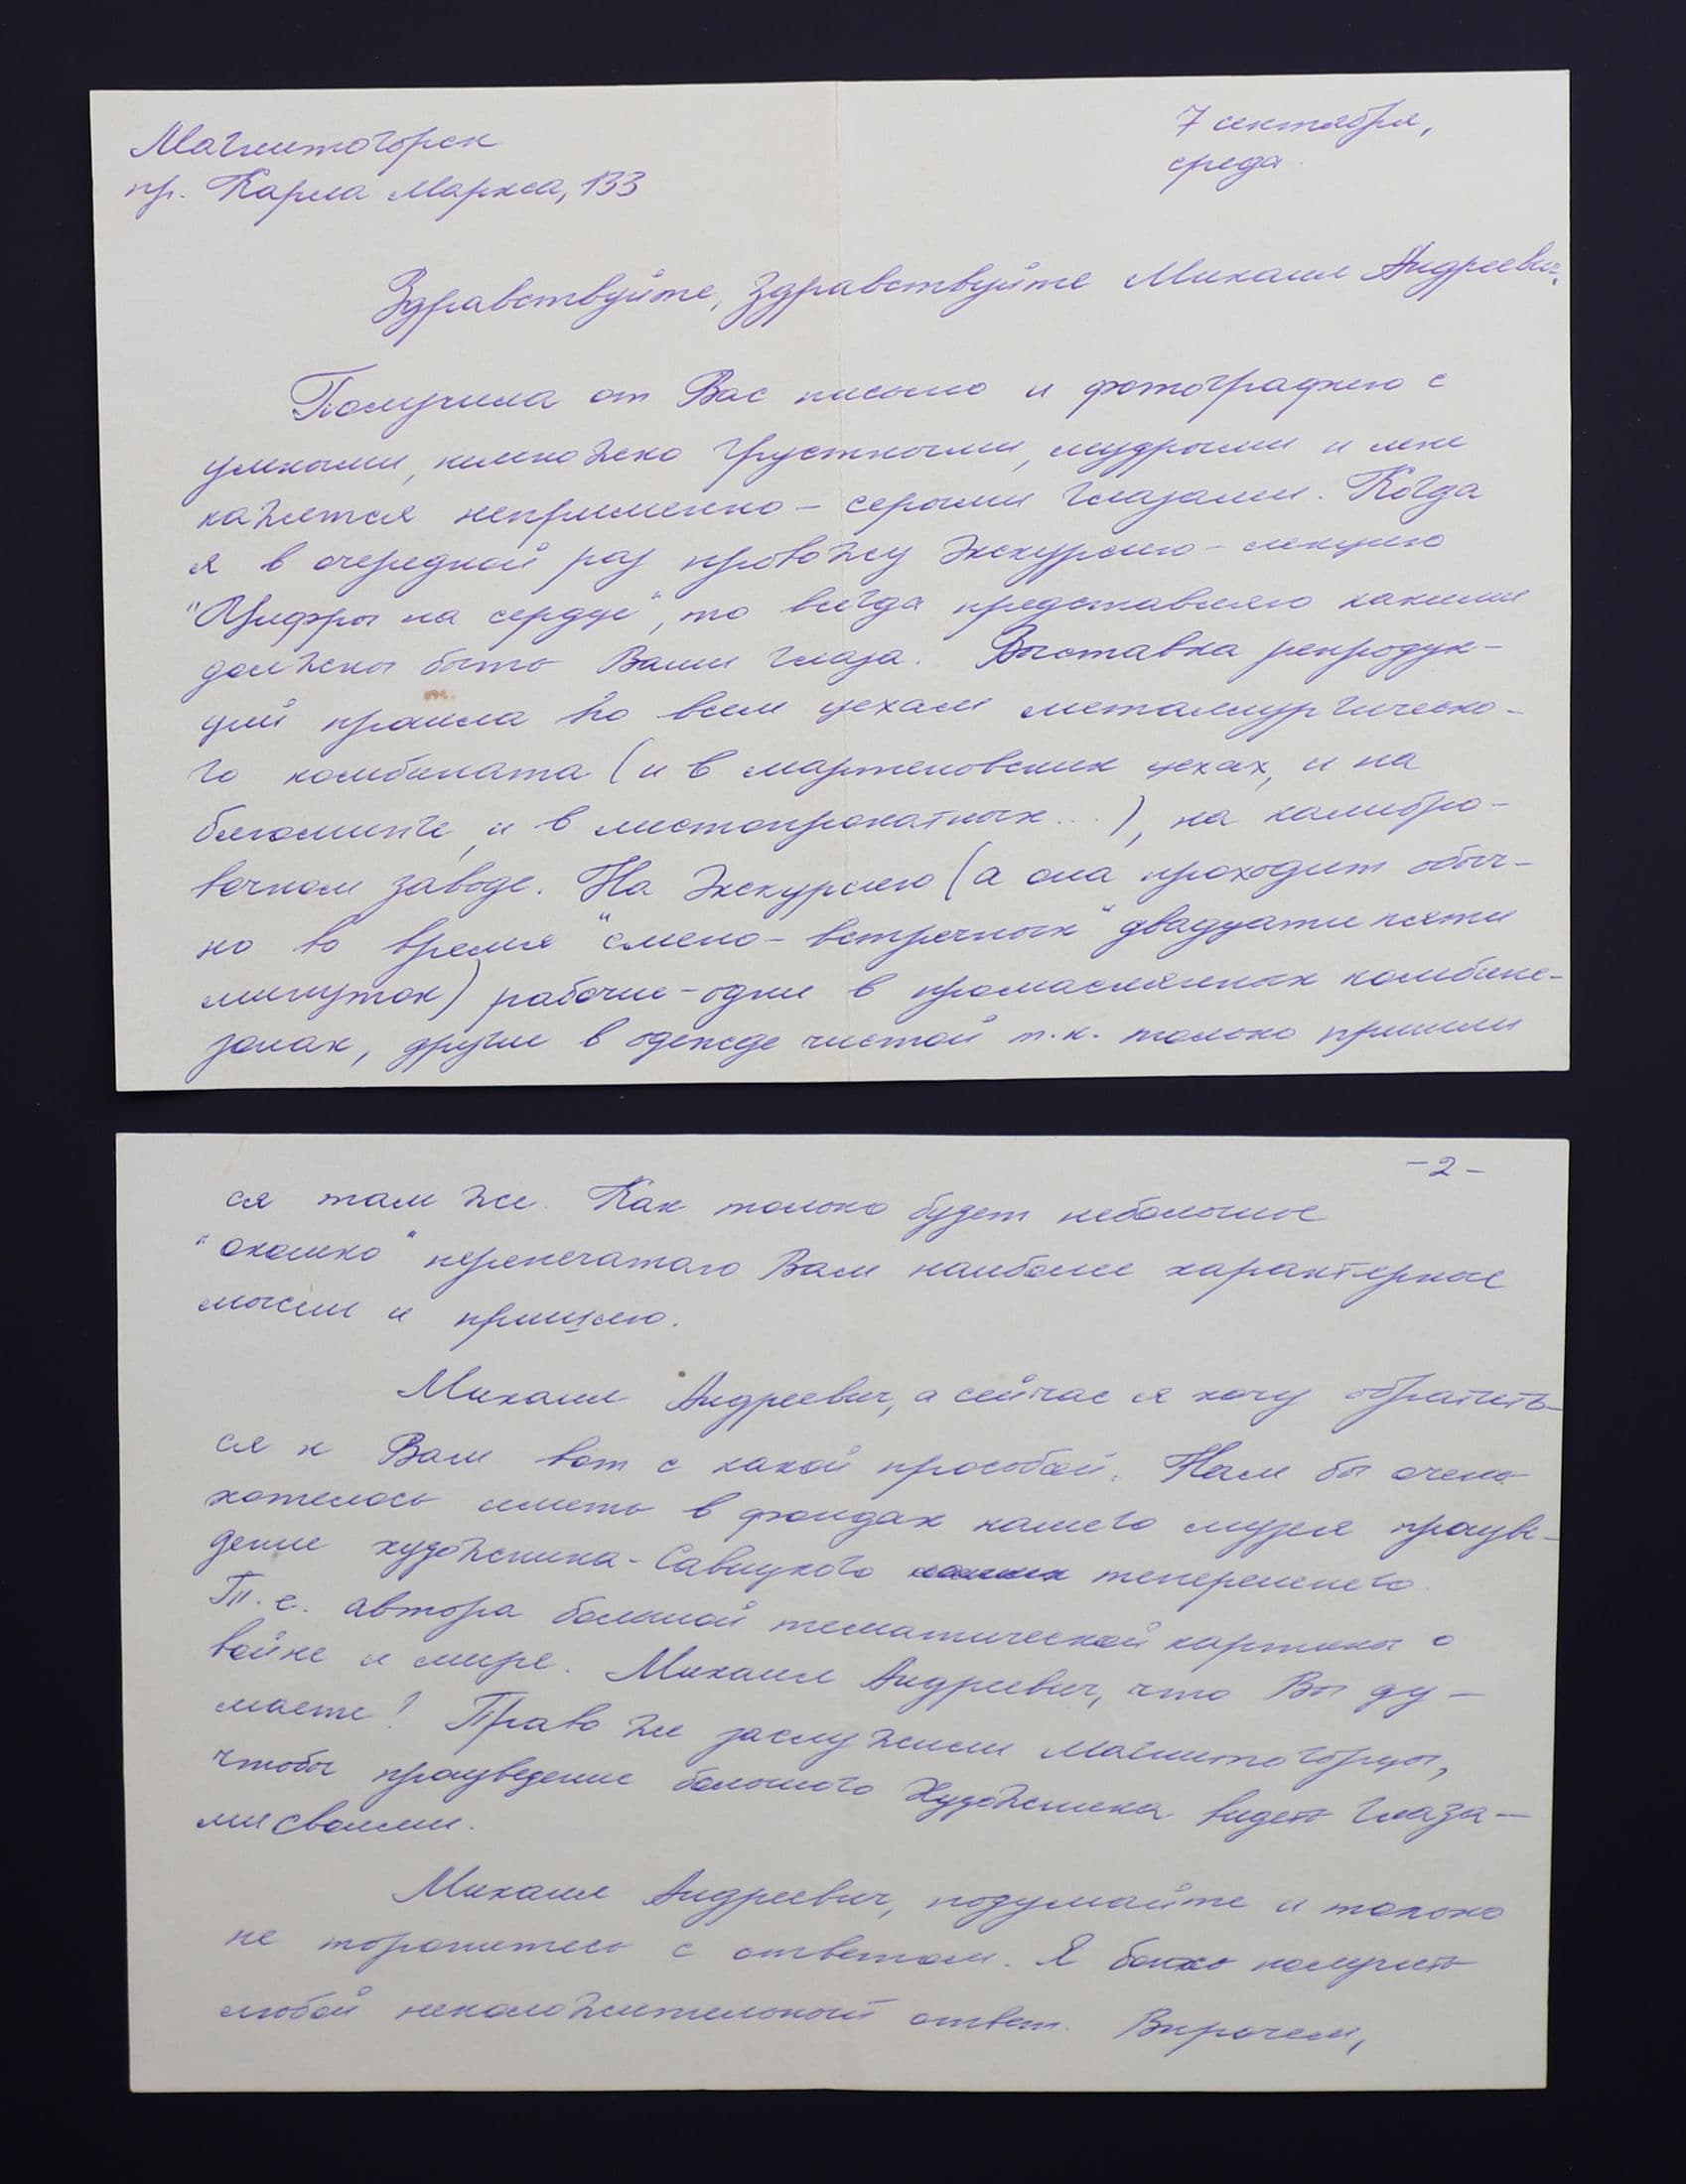 Магнитогорск
пр. Карла Маркса, 133
7 сентября,
среда.
Здравствуйте, здравствуйте Михаил Андреевич.
Получила от Вас письмо и фотографию с
умными, немножко грустными, мудрыми и мне
кажется непременно – серыми глазами. Когда
я в очередной раз провожу экскурсию – лекцию
"Цифры на сердце", то всегда представляю какими
должны быть Ваши глаза. Выставка репродук-
ций прошла по всем цехам металлургическо-
го комбината (и в мартеновских цехах, и на
блюминге, и в листопрокатных...), на калибро-
вочном заводе. На экскурсию (а она проходит обыч-
но во время "смено-встречных" двадцати пяти
минуток) рабочие – одни в промасляных комбине-
зонах, другие в одежде чистой т.к. только пришли
– 2 –
ся там же. Как только будет небольшое
"окошко" перепечатаю Вам наиболее характерные
мысли и пришлю.
Михаил Андреевич, а сейчас я хочу обратить-
ся к Вам вот с какой просьбой. Нам бы очень
хотелось иметь в фондах нашего музея произве-
дение художника – Савицкого теперешнего.
Т.е. автора большой тематической картины о
войне и мире. Михаил Андреевич, что Вы ду-
маете? Право же заслужили магнитогорцы,
чтобы произведение большого Художника видеть глаза-
ми своими.
Михаил Андреевич, подумайте и только
не торопитесь с ответом. Я боюсь получить
любой неположительный ответ. Впрочем,